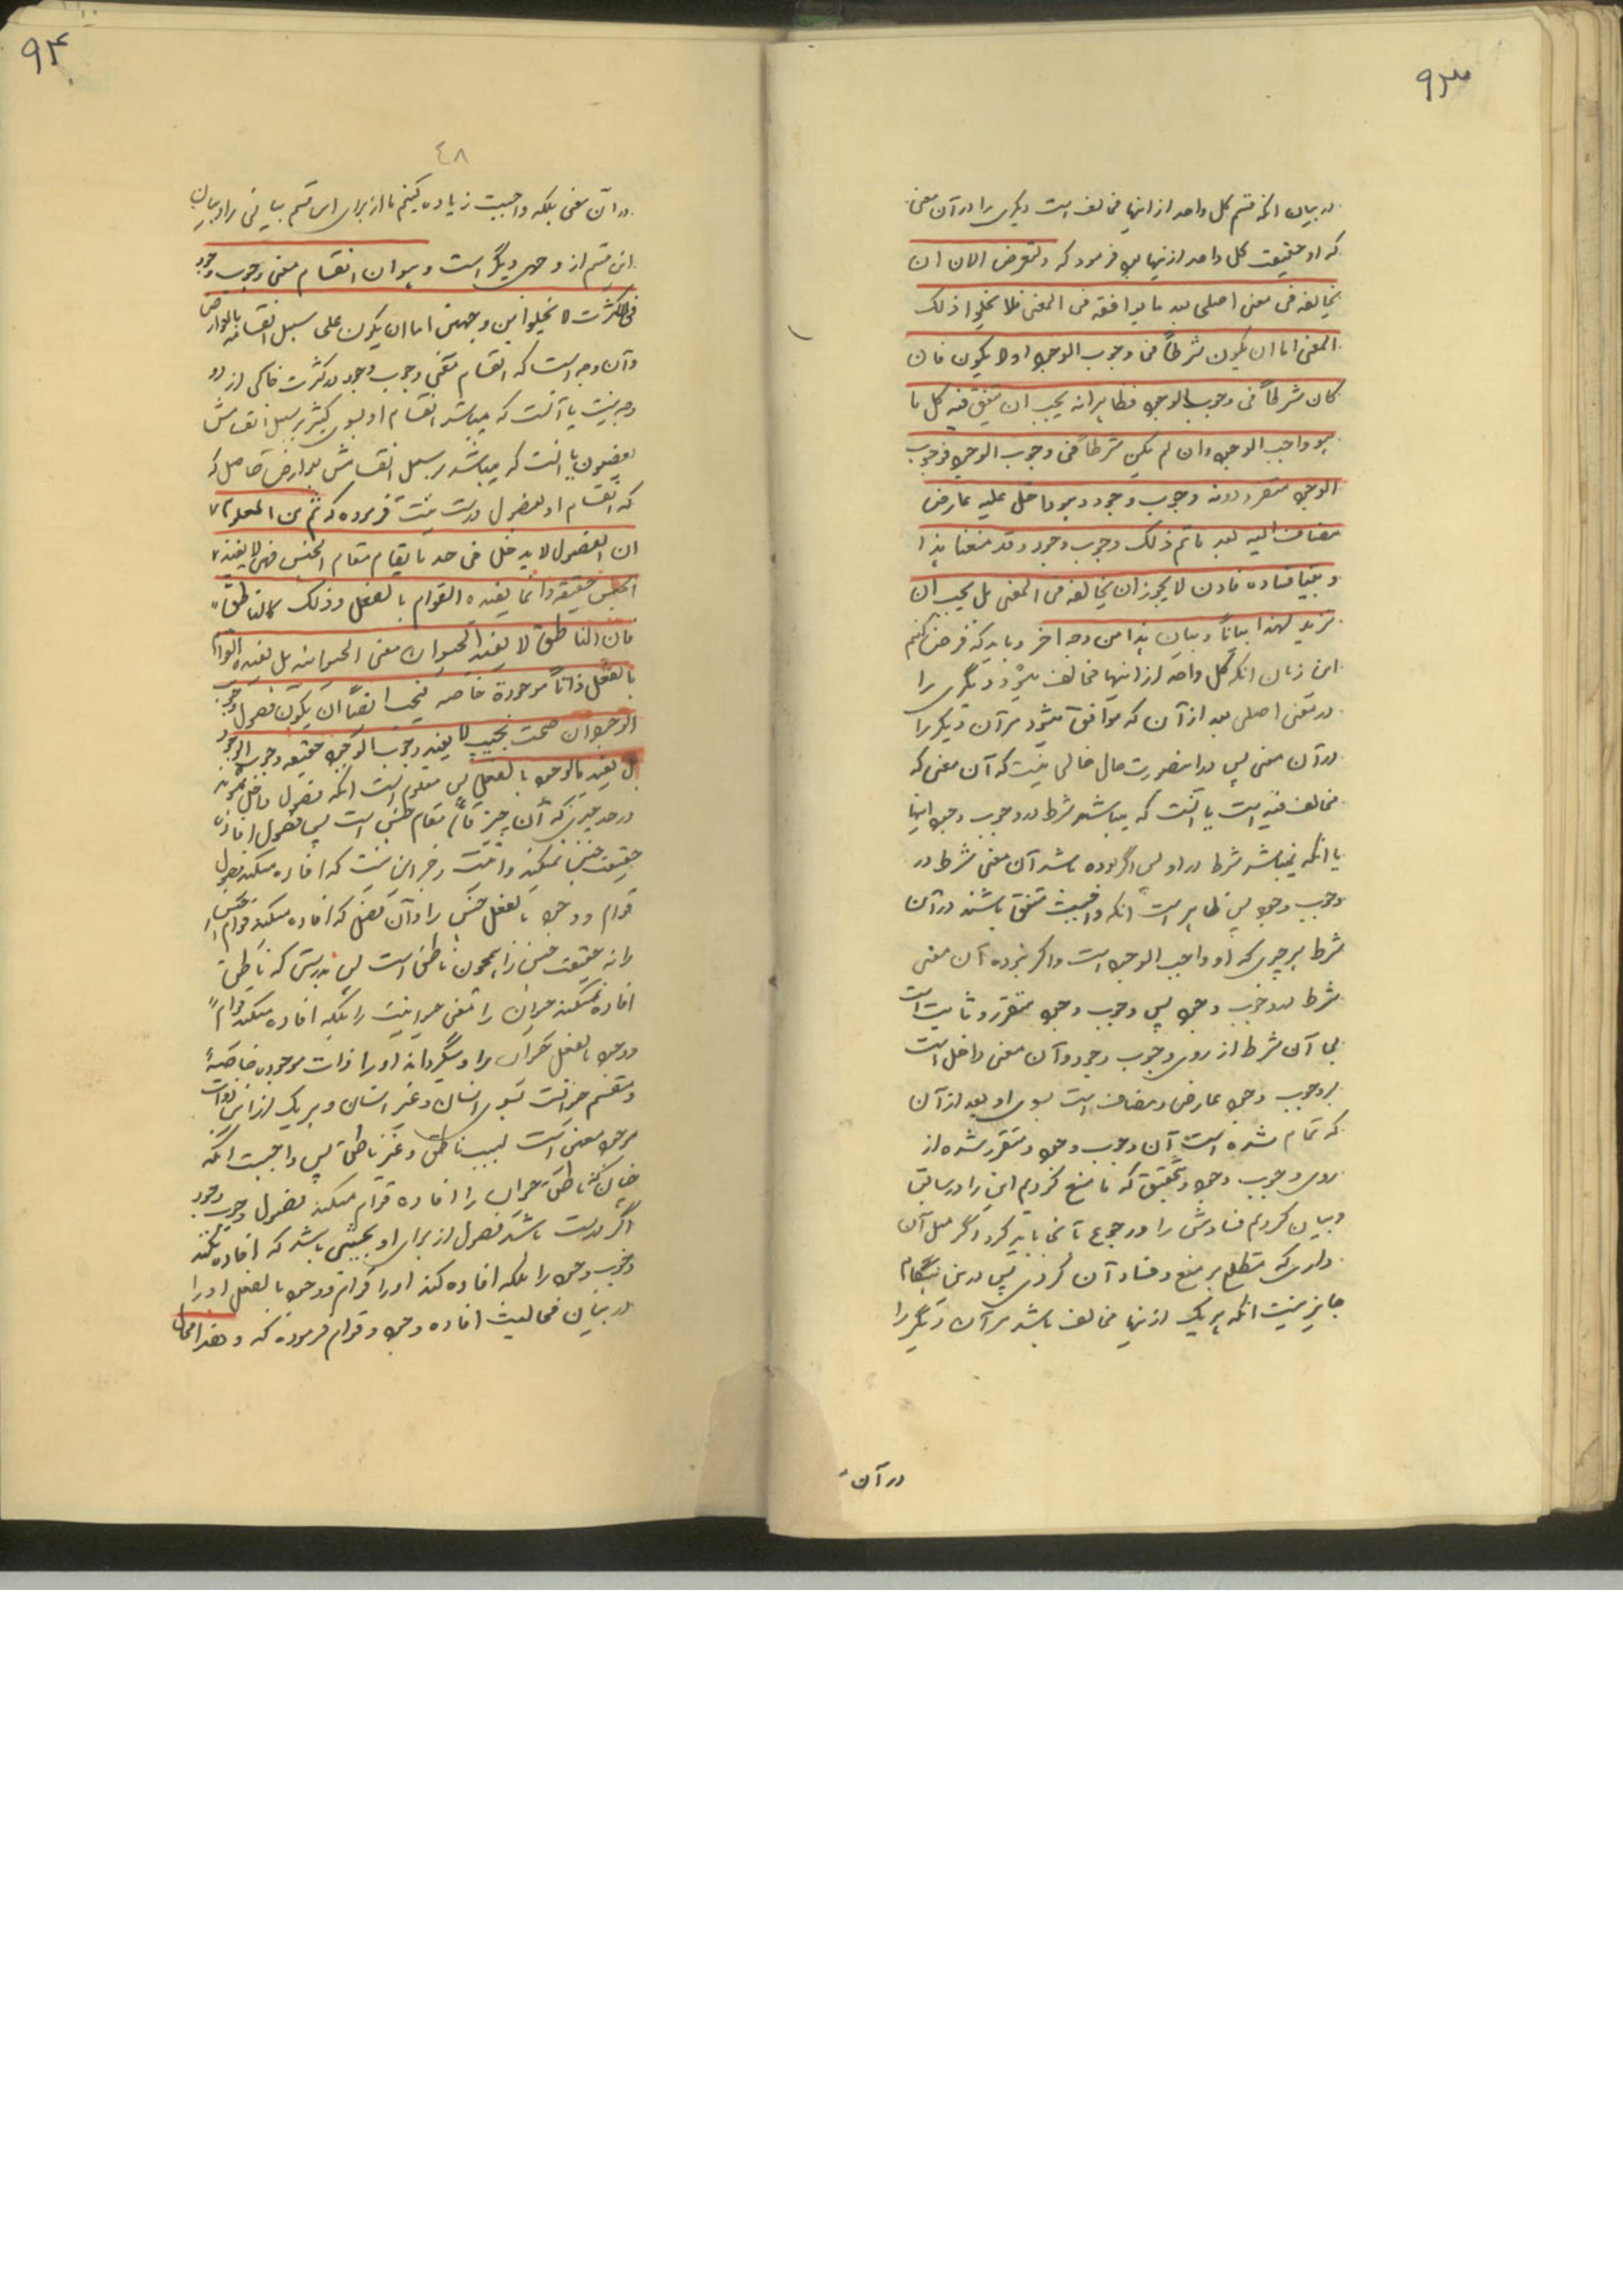 ۹۳
در بیان انکه قسم کل واحد از اینها مخالفست دیگری را در آن معنی
که او حقیقت کل واحد از اینها بود فرمود که ولنفرض الان ان
یخالفه فی معنی اصلی بعد ما یوافقه فی المعنی فلا یخلوا ذلک
المعنی اما ان یکون شرطاً فی وجوب الوجود او لا یکون فان
کان شرطاً فی وجوب الوجود فظاهر انه یجب ان یتفق فیه کل ما
هو واجب الوجود وان لم یکن شرطاً فی وجوب الوجود فوجوب
الوجود متقرر دونه وجوب وجود و هو داخل علیه عارض
مضاف الیه بعد ما تم ذلک وجوب وجود و قد منعنا هذا
و بینا فساده فاذن لا یجوز ان یخالفه فی المعنی بل یجب ان
نزید لهذا بیاناً و بیان هذا من وجه اخر و باید که فرض کنیم
این زمان انکه کل واحد از اینها مخالف میشود دیگری را
در معنی اصلی بعد از آن که موافق میشود مر آن دیگر را
در آن معنی پس در اینصورت حال خالی نیست که آن معنی که
مخالف فیه است یا آنست که میباشد شرط در وجوب وجود اینها
یا انکه نمیباشد شرط در او پس اگر بوده باشد آن معنی شرط در
وجوب وجود پس ظاهر است انکه واجبست متفق باشند در آن
شرط هر چیزی که او واجب الوجود است و اگر نبوده آن معنی
شرط در وجوب وجود پس وجوب وجود متقرر و ثابت است
بی آن شرط از روی وجوب وجود و آن معنی داخل است
بر وجوب وجود عارض و مضاف است بسوی او بعد از آن
که تمام شده است آن وجوب وجود و متقرر شده از
روی وجوب وجود و بتحقیق که ما منع کردیم این را در سابق
و بیان کردیم فسادش را و رجوع تا نجا باید کرد اگر میل آن
داری که مطلع بر منع و فساد آن گردی پس در این هنگام
جایز نیست انکه هر یک از اینها مخالف باشد مر آن دیگر را
در آن
۹۴
٤٨
در آن معنی بلکه واجبست زیاده کنیم ما از برای این قسم بیانی را و بیان
این قسم از وجهی دیگر است و هو ان انقسام معنی وجوب وجود
فی الکثرت لا یخلوا من وجهین اما ان یکون علی سبیل انقسامه بالعوارض
و آن وجه است که انقسام معنی وجوب وجود در کثرت خالی از دو
وجه نیست یا آنست که میباشد انقسام او بسوی کثیر بر سبیل انقسامش
بفصول یا انست که میباشد بر سبیل انقسامش بعوارض حاصل که
که انقسام او بفصول درست نیست فرموده که ثم من المعلوم
ان الفصول لا یدخل فی حد ما یقام مقام الجنس فهی لا یفید
الجنس حقیقة و انما یفیده القوام بالفعل و ذلک کالناطق
فان الناطق لا یفید الحیوان معنی الحیوانیه بل یفیده القوام
بالفعل ذاتاً موجودة خاصه فیجب ایضاً ان یکون فصول وجوب
الوجود ان صحت بحیث لا یفید وجوب الوجود حقیقه وجوب الوجود
بل یفید بالوجود بالفعل پس معلوم است انکه فصول داخل نمیشوند
در حد چیزی که آن چیز قائم مقام جنس است پس فصول افاده
حقیقت جنس نمیکنند و این نیست که افاده میکند فصول
قوام و وجود بالفعل جنس را و آن فصل که افاده میکند قوام جنس
را نه حقیقت جنس را همچون ناطق است پس بدرستی که ناطق
افاده نمیکند حیوان را معنی حیوانیت را بلکه افاده میکند قوام
و وجود بالفعل حیوان را و میگرداند او را ذات موجوده خاصهٔ
و منقسم حیوانست بسوی انسان و غیر انسان و هر یک از این ذوات
موجود معنی است بسبب ناطق و غیر ناطق پس واجبست انکه
چنانکه ناطق حیوان را افاده قوام میکند فصول وجوب وجود
اگر درست باشد فصول از برای او بحیثی باشد که افاده نکند
وجوب وجود را بلکه افاده کند او را قوام و وجود بالفعل او را
در بیان مخالفت افاده وجود و قوام فرموده که و هذا محال